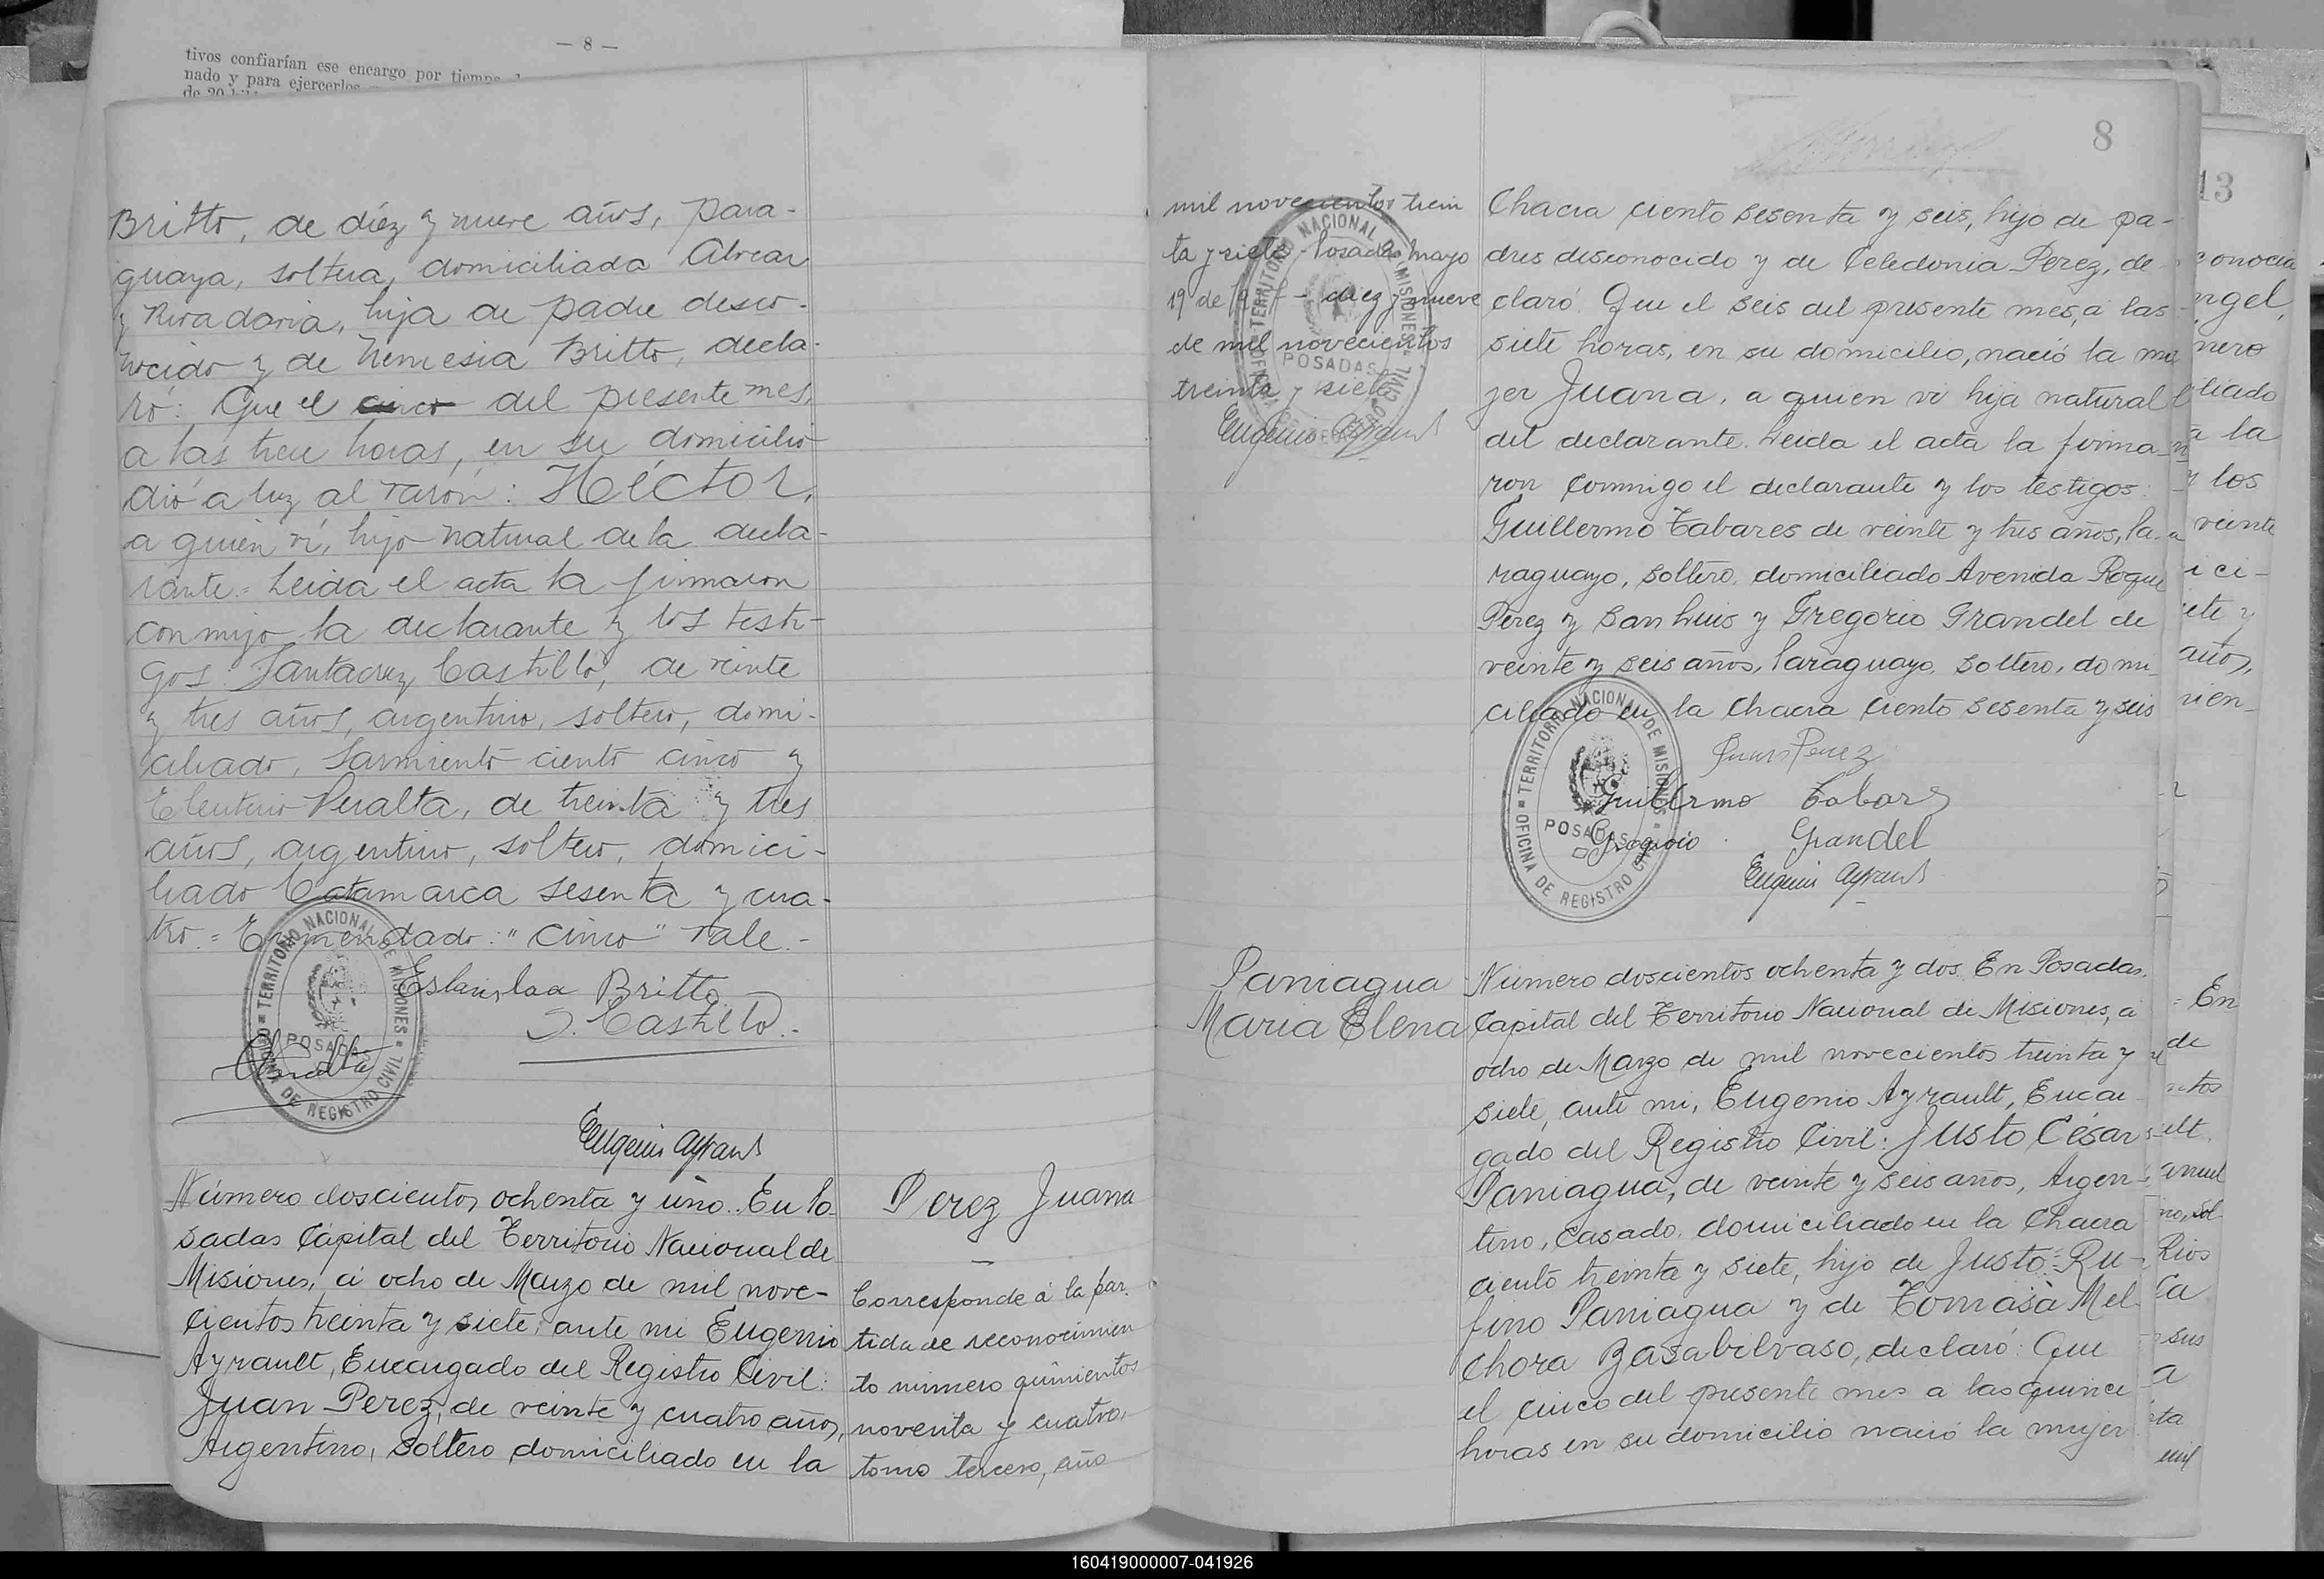 — 8 —
tivos confiarían ese encargo por tiempo
nado y para ejercerlos
Britto, de diéz y nueve años, para-
guaya, soltera, domiciliada Alvear
y Rivadavia, hija de padre desco-
nocido y de Nemesia Britto, decla-
ró: Que el cinco del presente mes,
a las trece horas, en su domicilio
dió a luz al varón: Héctor,
a quien ví, hijo natural de la decla-
rante.= Leida el acta la firmaron
conmigo la declarante y los testi-
gos: Santacruz Castillo, de veinte
y tres años, argentino, soltero, domi-
ciliado, Sarmiento ciento cinco y
Eleuterio Peralta, de treinta y tres
años, argentino, soltero, domici-
liado Catamarca sesenta y cua-
tro.= Enmendado: "cinco" vale.-
Estanislaa Britto
S. Castillo.-
EPeralta
TERRITORIO NACIONAL DE MISIONES
POSADAS
OFICINA DE REGISTRO CIVIL
Eugenio Ayrault
Número doscientos ochenta y uno. En Po-
sadas Cápital del Territorio Nacional de
Misiones, á ocho de Marzo de mil nove-
cientos treinta y siete, ante mi Eugenio
Ayrault, Encargado del Registro Civil:
Juan Perez, de veinte y cuatro años,
Argentino, Soltero domiciliado en la
Perez Juana
—
Corresponde á la par-
tida de reconocimien
to número quinientos
noventa y cuatro,
tomo tercero, año
mil novecientos trein
ta y siete - Posadas, mayo
19 de 19 - diez y nueve
de mil novecientos
treinta y siete
Eugenio Ayrault
TERRITORIO NACIONAL DE MISIONES
POSADAS
OFICINA DE REGISTRO CIVIL
8
Chacra ciento sesenta y seis, hijo de pa-
dres desconocido y de Celedonia Perez, de-
claró: Que el seis del presente mes, a las
siete horas, en su domicilio, nació la mu
jer Juana, a quien ví hija natural
del declarante. Leida el acta la firma-
ron conmigo el declarante y los testigos:
Guillermo Tabares de veinte y tres años, Pa-
raguayo, soltero, domiciliado Avenida Roque
Perez y San Luis y Gregorio Grandel de
veinte y seis años, Paraguayo, soltero, domi
ciliado en la Chacra ciento sesenta y seis
Juan Perez
Guillermo Tabares
Gregorio Grandel
Eugenio Ayrault
TERRITORIO NACIONAL DE MISIONES
POSADAS
OFICINA DE REGISTRO CIVIL
Paniagua
Maria Elena
Número doscientos ochenta y dos. En Posadas,
Capital del Territorio Nacional de Misiones, á
ocho de Marzo de mil novecientos treinta y
siete, ante mi, Eugenio Ayrault, Encar
gado del Registro Civil: Justo César
Paniagua, de veinte y seis años, Argen-
tino, casado, domiciliado en la Chacra
ciento treinta y siete, hijo de Justo Ru-
fino Paniagua y de Tomasa Mel-
chora Basabilvaso, declaró: Que
el cinco del presente mes a las quince
horas en su domicilio nació la mujer
13
conocia
ngel,
nero
iliado
a la
y los
veinte
ici-
iete y
años,
cien-
= En
de
ntos
elt
anuel
no, sol
Rios
Ca
sus
a
nta
mil
160419000007-041926